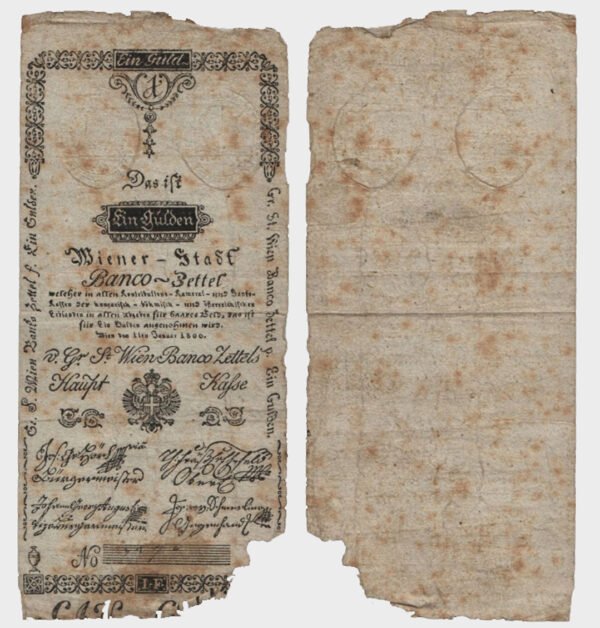 Ein Guld.
1
Das ist
Ein Gulden
Wiener - Stadt
Banco ~ Zettel
welcher in allen Kontributions - Kameral - und Banko-
Kassen der hungarisch - böhmisch - und österreichischen
Erblanden in allen Abgaben für baares Geld, das ist
für Ein Gulden angenohmen wird.
Wien den 1ten Januar 1800.
v. Gr. St. Wien Banco Zettels
Haupt Kasse
Bürgermeister
Johann Georg August
Vizbürgermeister
No
I.F.
Gr. S. Wien Banko Zettel f. Ein Gulden.
Gr. St. Wien Banco Zettel f. Ein Gulden.